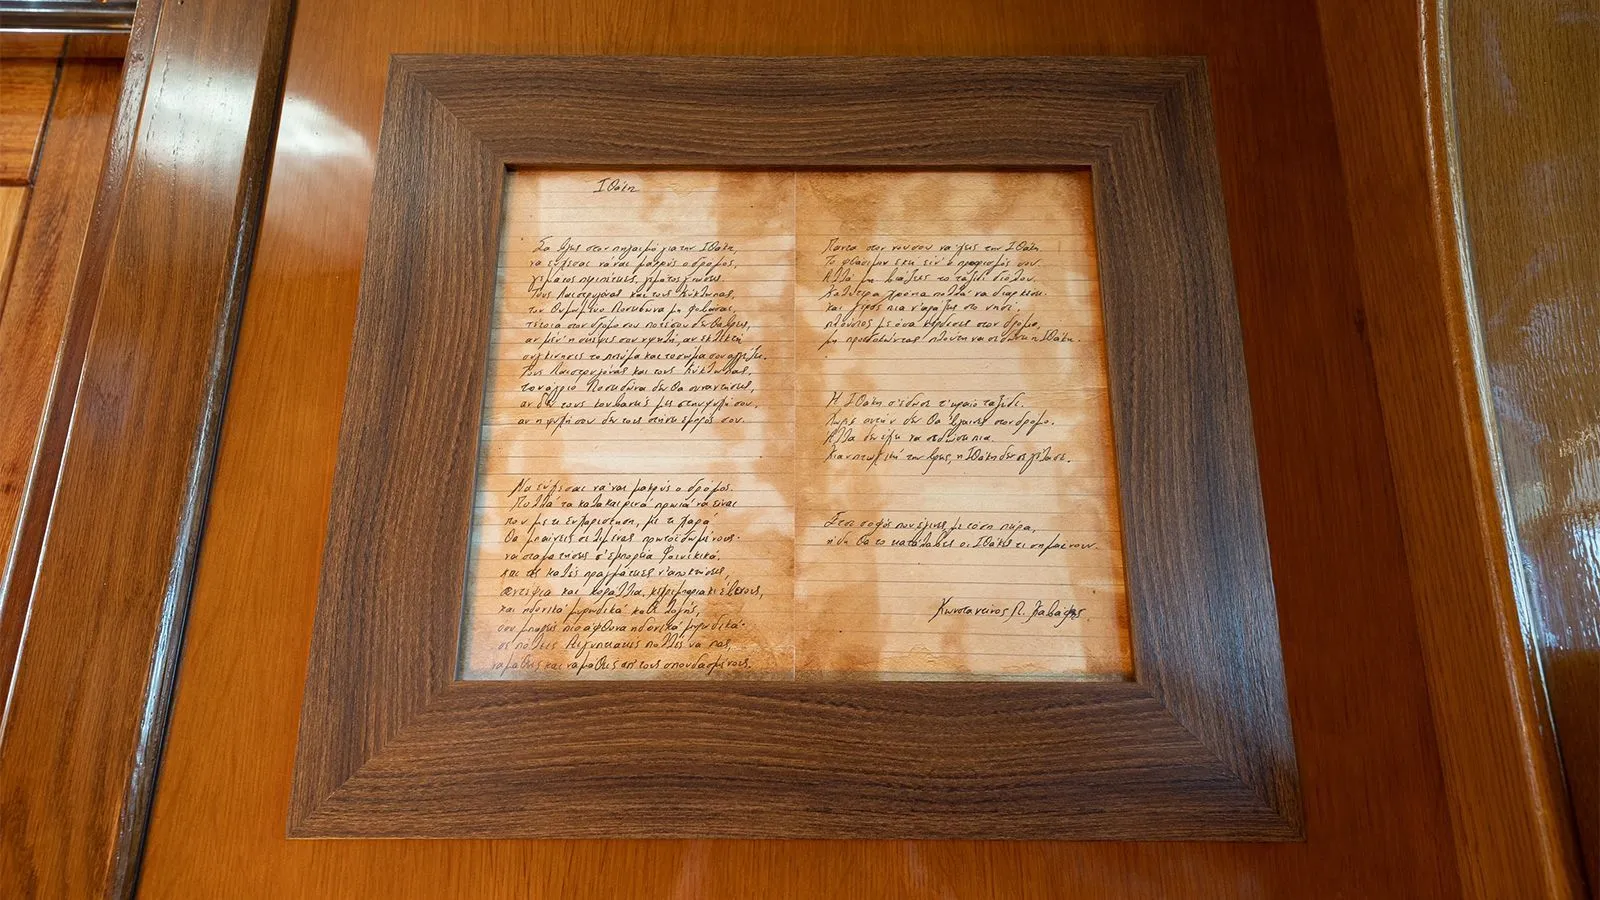 Ιθάκη
Σα βγεις στον πηγαιμό για την Ιθάκη,
να εύχεσαι να'ναι μακρύς ο δρόμος,
γεμάτος περιπέτειες, γεμάτος γνώσεις.
Τους Λαιστρυγόνας και τους Κύκλωπας,
τον θυμωμένο Ποσειδώνα μη φοβάσαι,
τέτοια στον δρόμο σου ποτέ σου δεν θα βρεις,
αν μέν' η σκέψις σου υψηλή, αν εκλεκτή
συγκίνησις το πνεύμα και το σώμα σου αγγίζει.
Τους Λαιστρυγόνας και τους Κύκλωπας,
τον άγριο Ποσειδώνα δεν θα συναντήσεις,
αν δεν τους κουβανείς μες στην ψυχή σου,
αν η ψυχή σου δεν τους στήνει εμπρός σου.
Να εύχεσαι να'ναι μακρύς ο δρόμος.
Πολλά τα καλοκαιρινά πρωιά να είναι
που με τι ευχαρίστηση, με τι χαρά
θα μπαίνεις σε λιμένας πρωτοειδωμένους·
να σταματήσεις σ'εμπορεία Φοινικικά,
και τες καλές πραγμάτειες ν'αποκτήσεις,
σεντέφια και κοράλλια, κεχριμπάρια κι έβενους,
και ηδονικά μυρωδικά κάθε λογής,
όσο μπορείς πιο άφθονα ηδονικά μυρωδικά·
σε πόλεις Αιγυπτιακές πολλές να πας,
να μάθεις και να μάθεις απ'τους σπουδασμένους.
Πάντα στον νου σου να'χεις την Ιθάκη.
Το φθάσιμον εκεί είν'ο προορισμός σου.
Αλλά μη βιάζεις το ταξίδι διόλου.
Καλύτερα χρόνια πολλά να διαρκέσει·
και γέρος πια ν'αράξεις στο νησί,
πλούσιος με όσα κέρδισες στον δρόμο,
μη προσδοκώντας πλούτη να σε δώσει η Ιθάκη.
Η Ιθάκη σ'έδωσε τ'ωραίο ταξίδι.
Χωρίς αυτήν δεν θα'βγαινες στον δρόμο.
Άλλα δεν έχει να σε δώσει πια.
Κι αν πτωχική την βρεις, η Ιθάκη δεν σε γέλασε.
Έτσι σοφός που έγινες, με τόση πείρα,
ήδη θα το κατάλαβες οι Ιθάκες τι σημαίνουν.
Κωνσταντίνος Π. Καβάφης